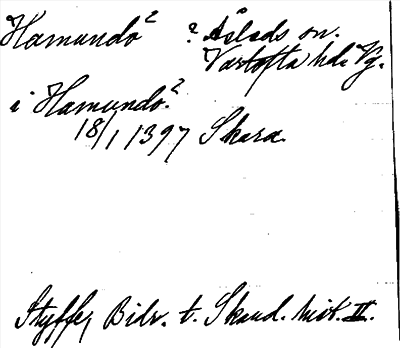 Hamundo² ? Åslads sn.
Vartofta hd. Vg.
i Hamundo.²
18/1 1397 Skara.
Styffe, Bidr. t. Skand. hist. II.